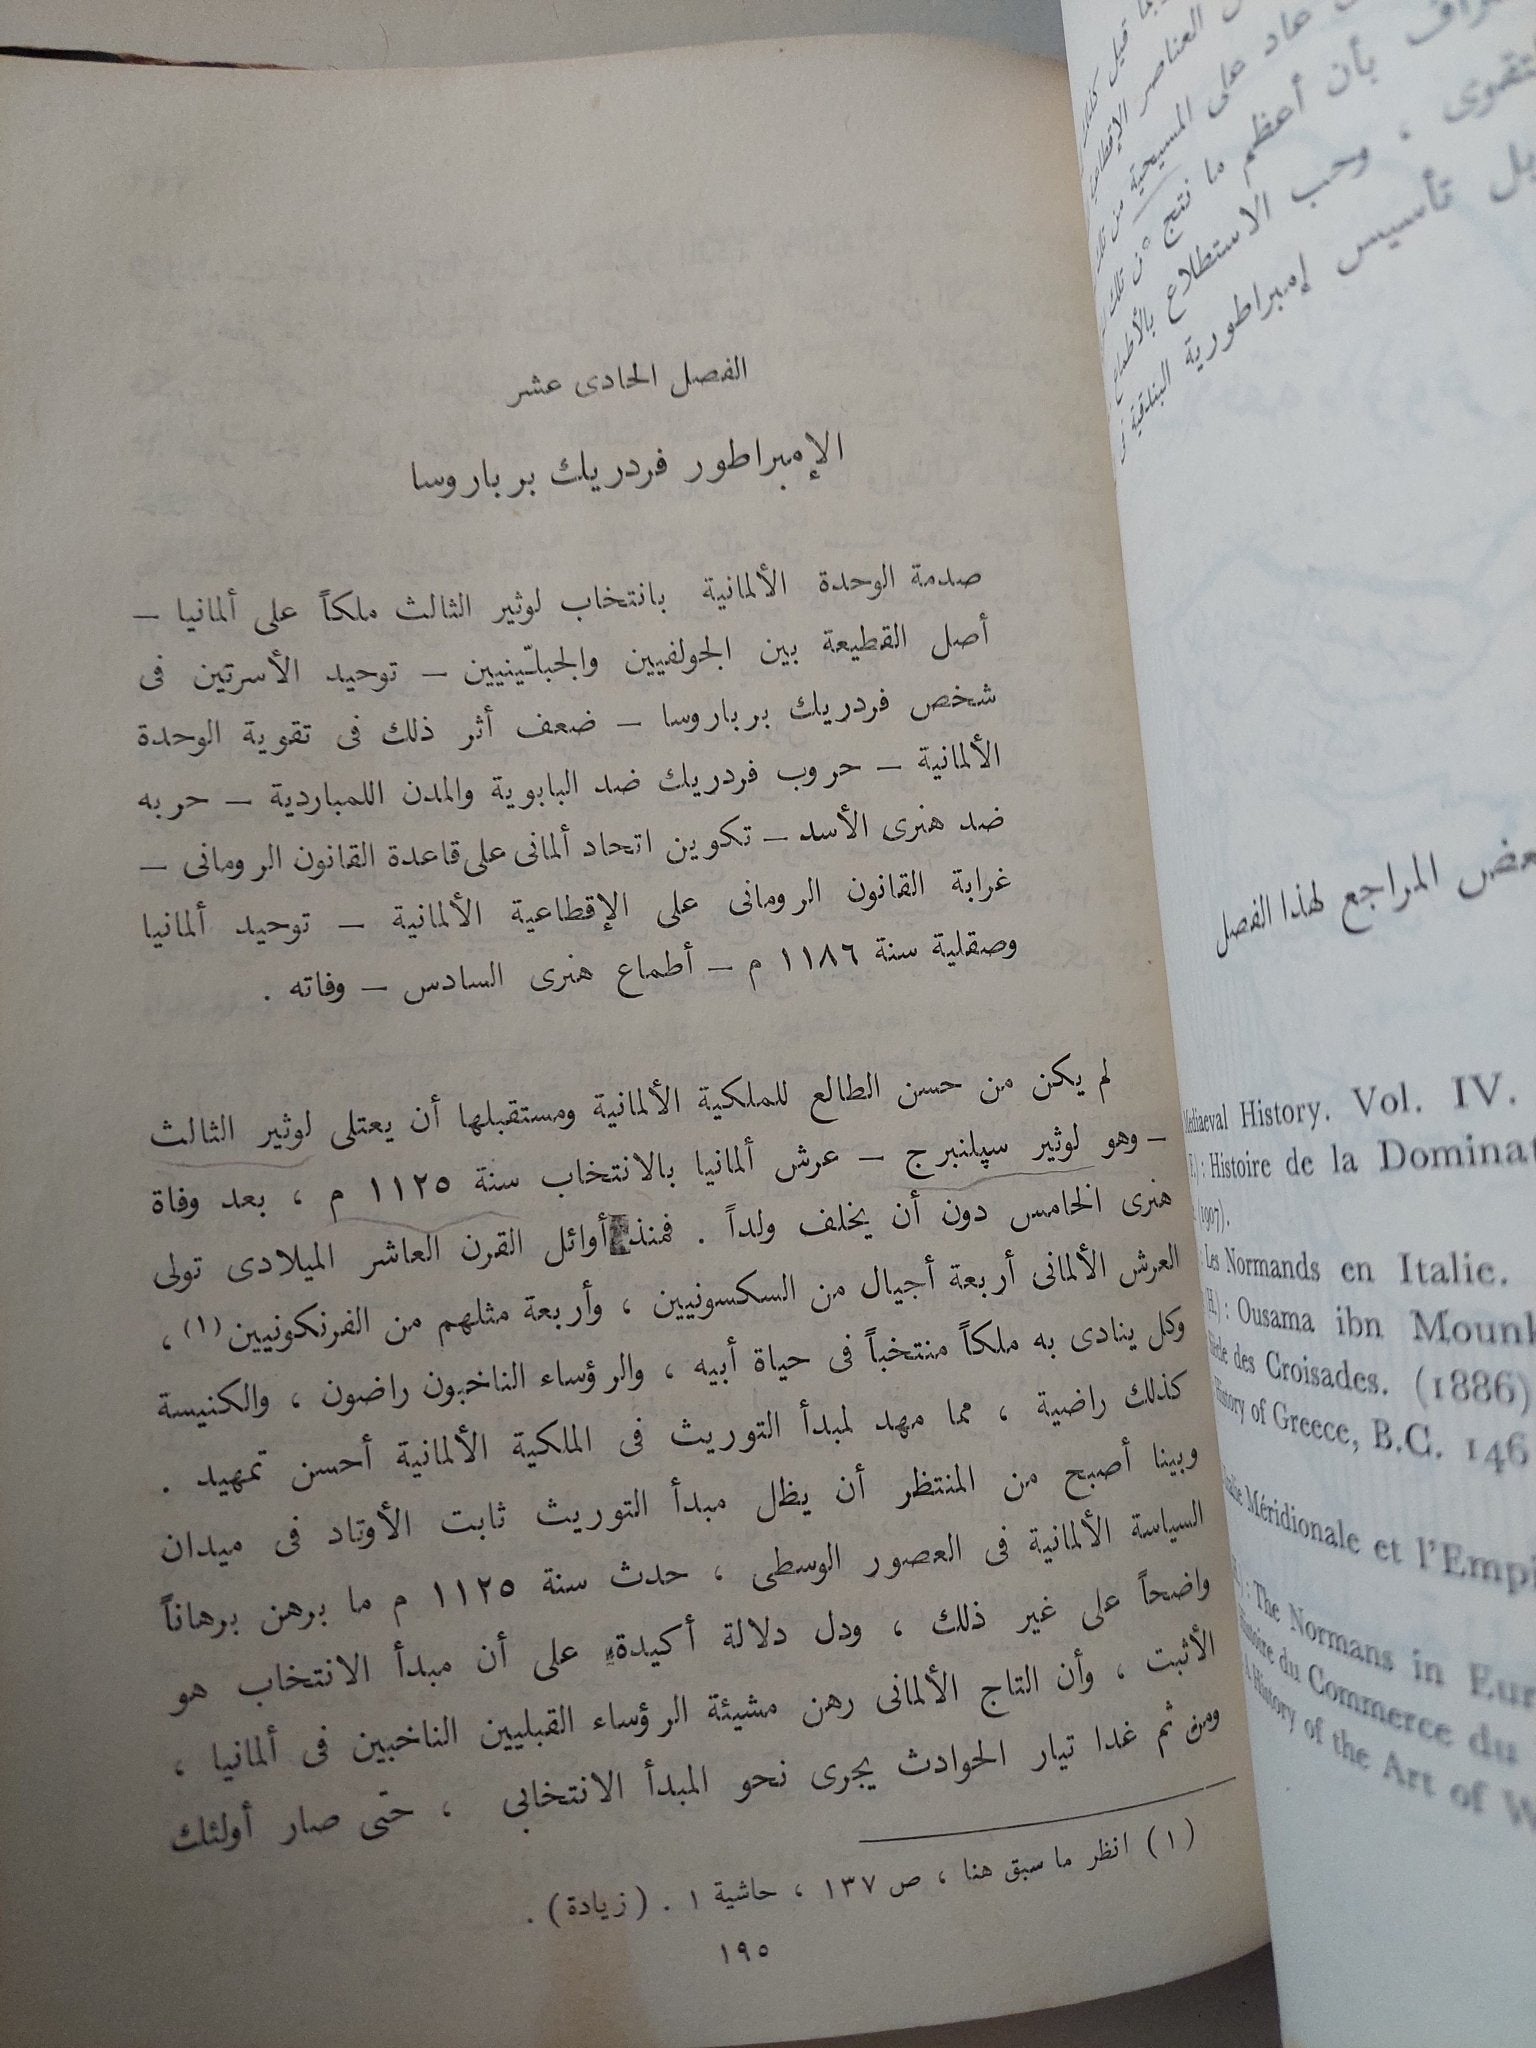 الفصل الحادى عشر
الإمبراطور فردريك بربا روسا
صدمة الوحدة الألمانية بانتخاب لوثير الثالث ملكاً على ألمانيا —
أصل القطيعة بين الجولفيين والجبلّينيين — توحيد الأسرتين فى
شخص فردريك بربا روسا — ضعف أثر ذلك فى تقوية الوحدة
الألمانية — حروب فردريك ضد البابوية والمدن اللمباردية — حربه
ضد هنرى الأسد — تكوين اتحاد ألمانى على قاعدة القانون الرومانى —
غرابة القانون الرومانى على الإقطاعية الألمانية — توحيد ألمانيا
وصقلية سنة ١١٨٦ م — أطماع هنرى السادس — وفاته .
لم يكن من حسن الطالع للملكية الألمانية ومستقبلها أن يعتلى لوثير الثالث
— وهو لوثير سپلنبرج — عرش ألمانيا بالانتخاب سنة ١١٢٥ م ، بعد وفاة
هنرى الخامس دون أن يخلف ولداً . فمنذ أوائل القرن العاشر الميلادى تولى
العرش الألمانى أربعة أجيال من السكسونيين ، وأربعة مثلهم من الفرنكونيين (١) ،
وكل ينادى به ملكاً منتخباً فى حياة أبيه ، والرؤساء الناخبون راضون ، والكنيسة
كذلك راضية ، مما مهد لمبدأ التوريث فى الملكية الألمانية أحسن تمهيد .
وبينا أصبح من المنتظر أن يظل مبدأ التوريث ثابت الأوتاد فى ميدان
السياسة الألمانية فى العصور الوسطى ، حدث سنة ١١٢٥ م ما برهن برهاناً
واضحاً على غير ذلك ، ودل دلالة أكيدة على أن مبدأ الانتخاب هو
الأثبت ، وأن التاج الألمانى رهن مشيئة الرؤساء القبليين الناخبين فى ألمانيا ،
ومن ثم غدا تيار الحوادث يجرى نحو المبدأ الانتخابى ، حتى صار أولئك
(١) انظر ما سبق هنا ، ص ١٣٧ ، حاشية ١ . (زيادة) .
١٩٥
قيل كذلك
العناصر الإقطاعية
عاد على المسيحية من تلك
بأن أعظم ما نتج عن تلك
، وحب الاستطلاع بالأطماع
تأسيس إمبراطورية البندقية فى
المراجع لهذا الفصل
Mediaeval History. Vol. IV.
: Histoire de la
(1907).
Les Normands en Italie.
(H.) : Ousama ibn
des Croisades. (1886)
History of Greece, B.C. 146
Méridionale et l'
: The Normans in
Histoire du Commerce du
A History of the Art of